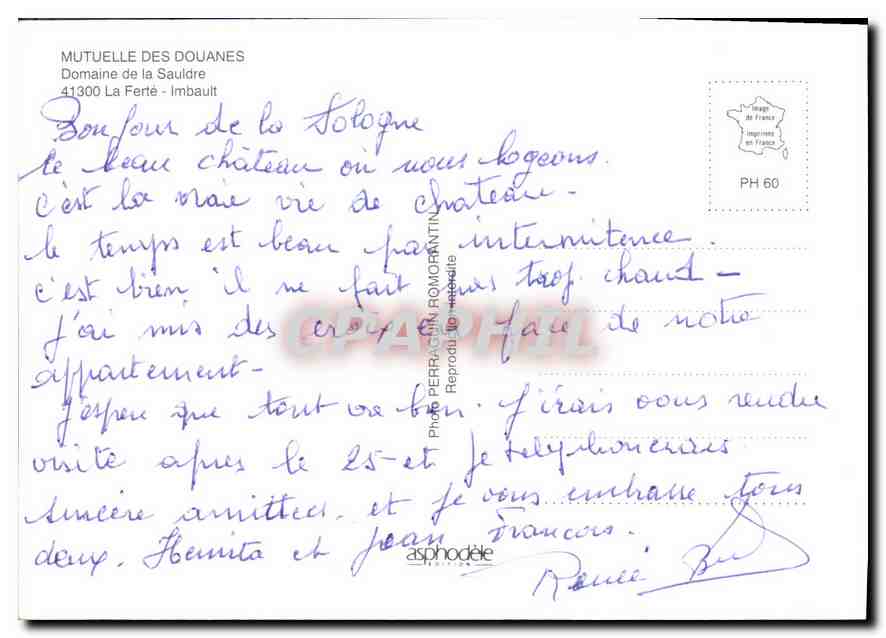 MUTUELLE DES DOUANES
Domaine de la Sauldre
41300 La Ferté - Imbault
Image
de France
Imprimée
en France
PH 60
Bonjour de la Sologne
le beau château où nous logeons.
c'est la vraie vie de chateau -
le temps est beau par intermitence.
c'est bien il ne fait pas trop chaud -
J'ai mis des croix en face de notre
appartement -
J'espere que tout va bien. J'irais vous rendre
visite apres le 25 - et je telephonerais
Sincère amitiées. et je vous embrasse tous
deux. et Jean François.
Renée
Photo PERRAGUIN ROMORANTIN
Reproduction interdite
CPAPHIL
asphodèle
EDITION